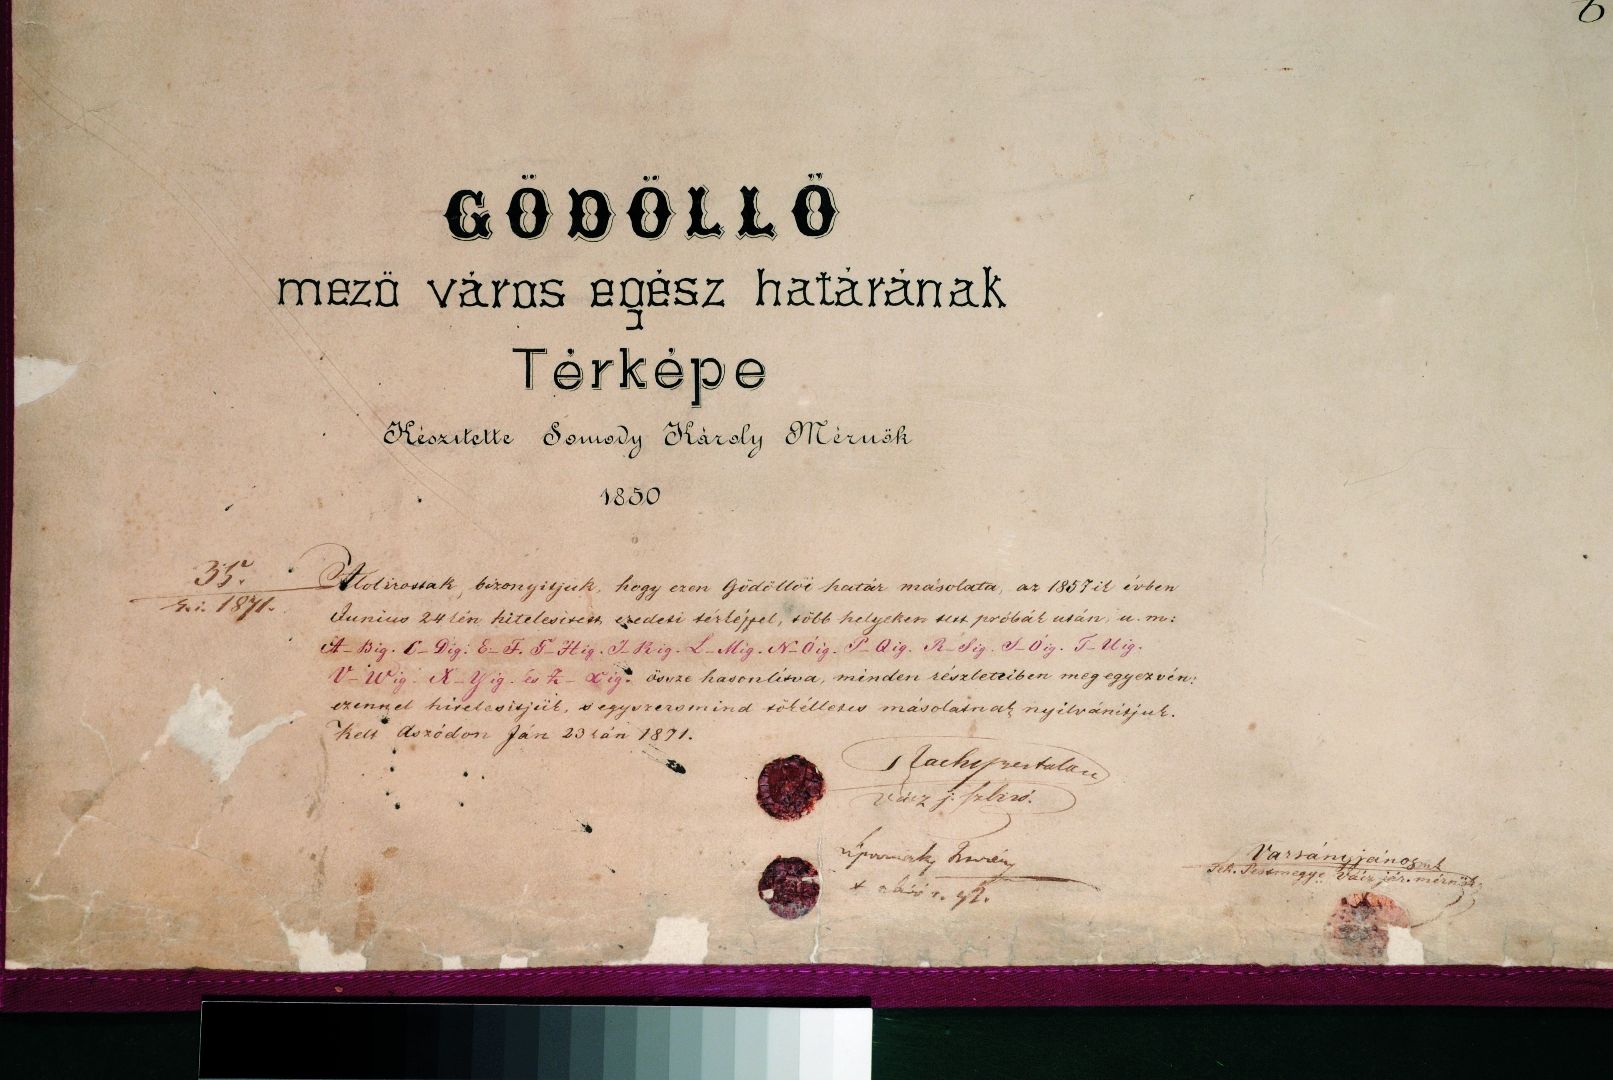 GÖDÖLLŐ
mező város egész határának
Térképe
Készitette Somody Károly Mérnök
1850
35.
1871.
Alolirottak, bizonyitjuk, hogy ezen Gödöllői határ másolata, az 1857ik évben
Junius 24kén hitelesitett eredeti térképpel, több helyeken tett próbák után, u. m:
A–Big. C–Dig: E–F. G–Hig. I–Kig. L–Mig. N–Óig. P–Qig. R–Sig. S–Óig. T–Uig.
V–Wig. X–Yig. és Z– össze hasonlitva, minden részleteiben megegyezvén:
ezennel hitelesitjük, s egyszersmind tökélletes másolatnak nyilvánitjuk.
Kelt Aszódon Ján 23kán 1871.
Vácz j. szbiró.
Varsányi János mk
Pestmegye Vácz jár. mérnök